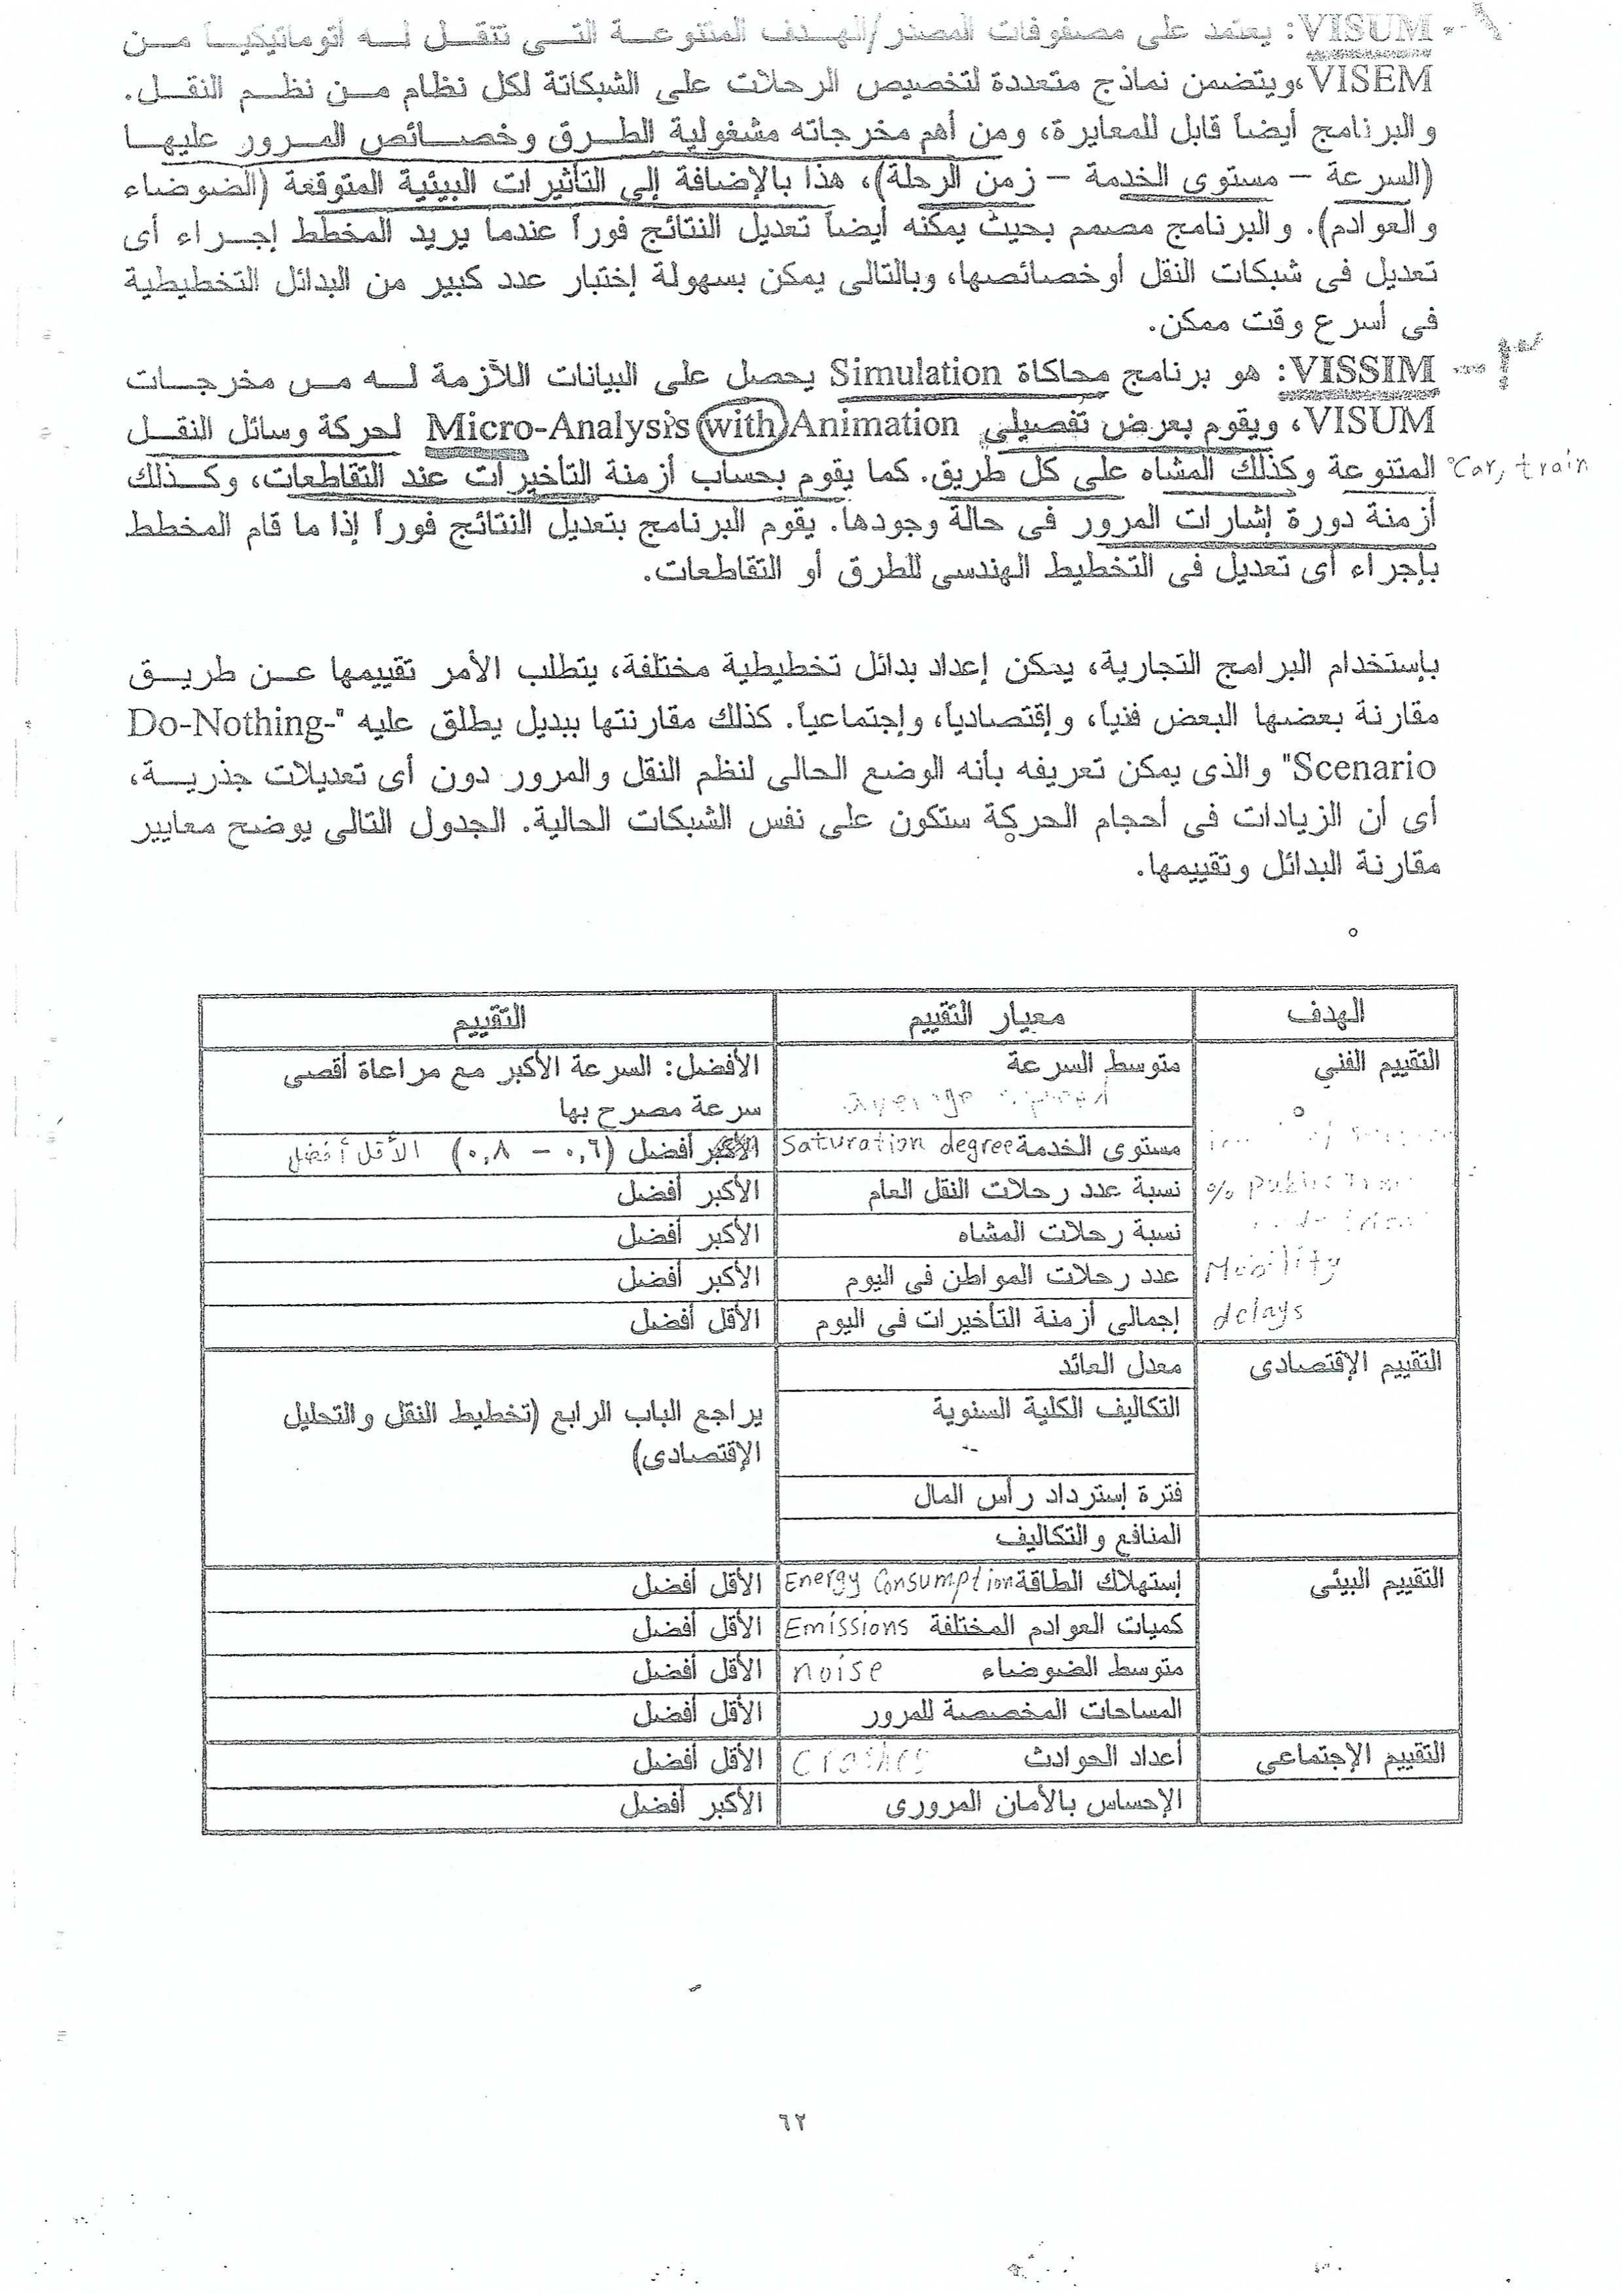 VISUM: يعتمد على مصفوفات المصدر/الهدف المتنوعة التى تنتقل له أتوماتيكياً من
VISEM، ويتضمن نماذج متعددة لتخصيص الرحلات على الشبكاتة لكل نظام من نظم النقل.
والبرنامج أيضاً قابل للمعايرة، ومن أهم مخرجاته مشغولية الطرق وخصائص المرور عليها
(السرعة – مستوى الخدمة – زمن الرحلة)، هذا بالإضافة إلى التأثيرات البيئية المتوقعة (الضوضاء
والعوادم). والبرنامج مصمم بحيث يمكنه أيضاً تعديل النتائج فوراً عندما يريد المخطط إجراء أى
تعديل فى شبكات النقل أوخصائصها، وبالتالى يمكن بسهولة إختبار عدد كبير من البدائل التخطيطية
فى أسرع وقت ممكن.
VISSIM: هو برنامج محاكاة Simulation يحصل على البيانات اللآزمة له من مخرجات
VISUM، ويقوم بعرض تفصيلي Micro-Analysis with Animation لحركة وسائل النقل
Car, train المتنوعة وكذلك المشاه على كل طريق. كما يقوم بحساب أزمنة التأخيرات عند التقاطعات، وكذلك
أزمنة دورة إشارات المرور فى حالة وجودها. يقوم البرنامج بتعديل النتائج فوراً إذا ما قام المخطط
بإجراء أى تعديل فى التخطيط الهندسى للطرق أو التقاطعات.
بإستخدام البرامج التجارية، يمكن إعداد بدائل تخطيطية مختلفة، يتطلب الأمر تقييمها عن طريق
مقارنة بعضها البعض فنياً، وإقتصادياً، وإجتماعياً. كذلك مقارنتها ببديل يطلق عليه "Do-Nothing-
Scenario" والذى يمكن تعريفه بأنه الوضع الحالى لنظم النقل والمرور دون أى تعديلات جذرية،
أى أن الزيادات فى أحجام الحركة ستكون على نفس الشبكات الحالية. الجدول التالى يوضح معايير
مقارنة البدائل وتقييمها.
الهدف معيار التقييم التقييم
التقييم الفني متوسط السرعة الأفضل: السرعة الأكبر مع مراعاة أقصى
average speed سرعة مصرح بها
مستوى الخدمة Saturation degree أفضل (٠,٦ – ٠,٨) الأقل أفضل
% public نسبة عدد رحلات النقل العام الأكبر أفضل
نسبة رحلات المشاه الأكبر أفضل
Mobility عدد رحلات المواطن فى اليوم الأكبر أفضل
delays إجمالى أزمنة التأخيرات فى اليوم الأقل أفضل
التقييم الإقتصادى معدل العائد
التكاليف الكلية السنوية يراجع الباب الرابع (تخطيط النقل والتحليل
الإقتصادى)
فترة إسترداد رأس المال
المنافع والتكاليف
التقييم البيئى إستهلاك الطاقة Energy Consumption الأقل أفضل
كميات العوادم المختلفة Emissions الأقل أفضل
متوسط الضوضاء noise الأقل أفضل
المساحات المخصصة للمرور الأقل أفضل
التقييم الإجتماعى أعداد الحوادث Crashes الأقل أفضل
الإحساس بالأمان المرورى الأكبر أفضل
٦٢